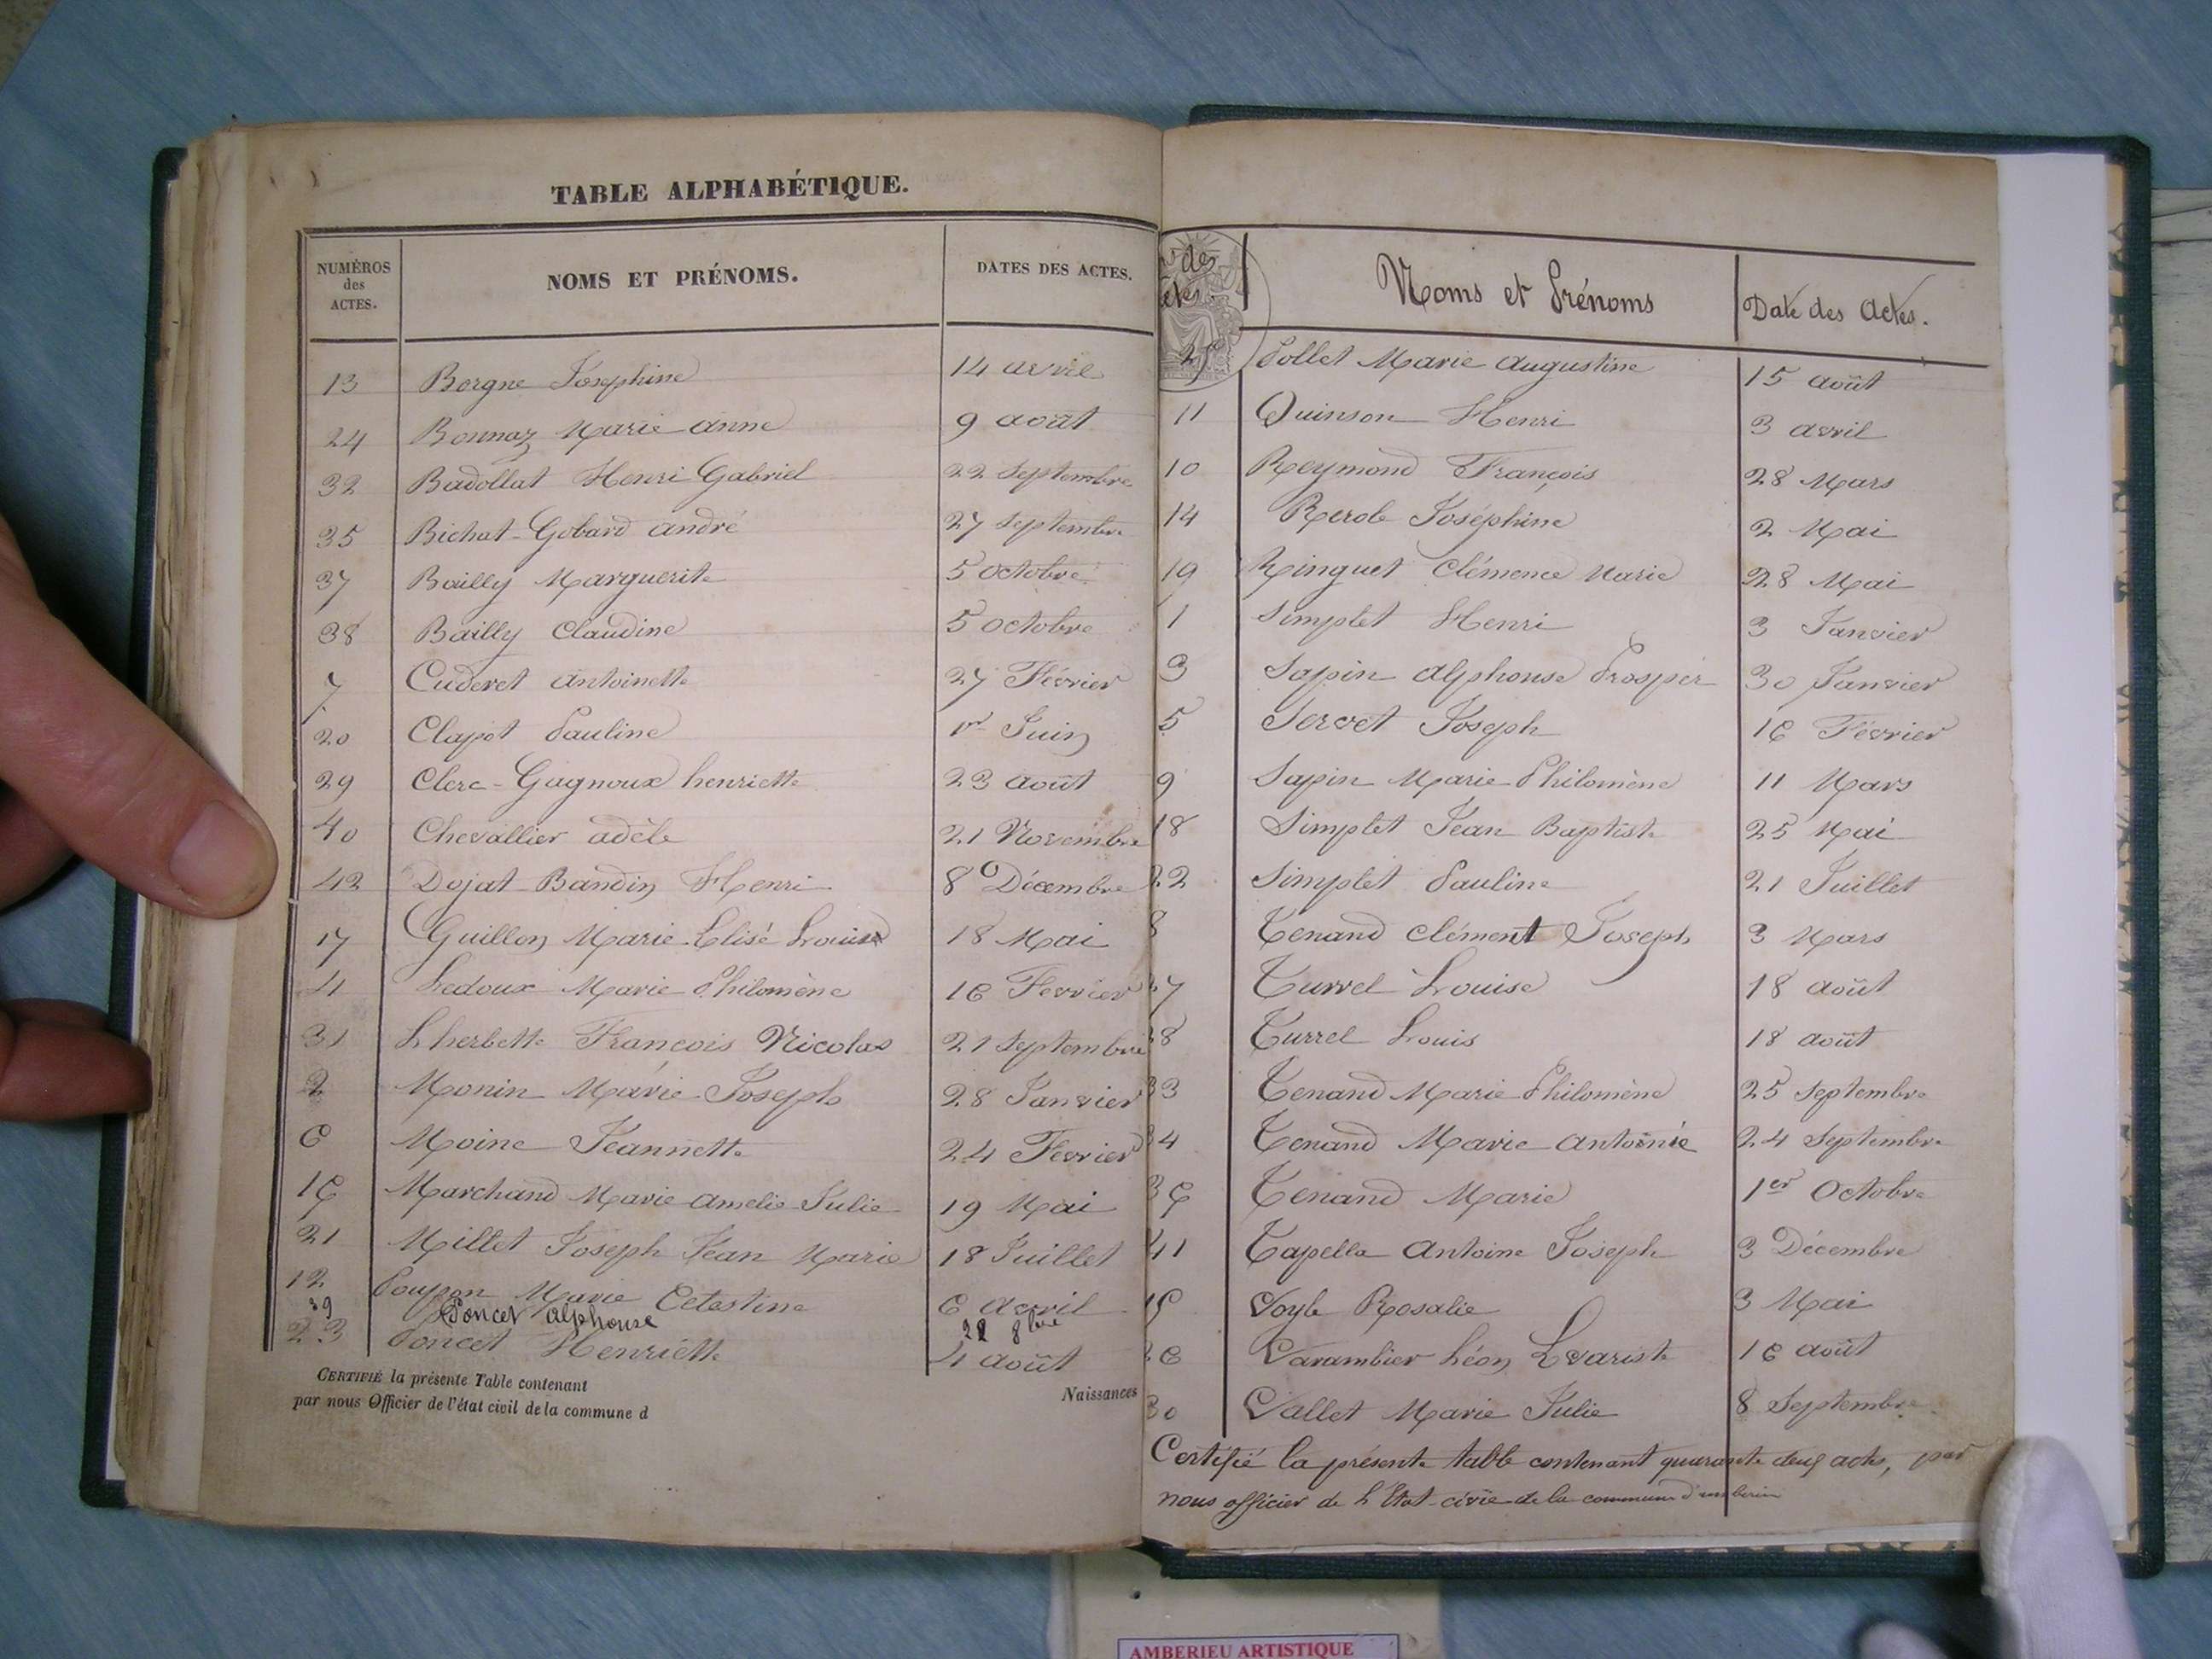 TABLE ALPHABÉTIQUE.
NUMÉROS des ACTES. NOMS ET PRÉNOMS. DATES DES ACTES.
13 Borgne Joséphine 14 avril
24 Bonnaz Marie Anne 9 août
32 Badollat Henri Gabriel 22 Septembre
35 Bichat-Gobard André 27 Septembre
37 Bailly Marguerite 5 Octobre
38 Bailly Claudine 5 Octobre
7 Cuderet Antoinette 27 Février
20 Clapot Pauline 1er Juin
29 Clerc-Gagnoux henriette 23 août
40 Chevallier adèle 21 Novembre
42 Dojat-Bandin Henri 8 Décembre
17 Guillon Marie Elisé Louise 18 Mai
4 Ledoux Marie Philomène 16 Fevrier
31 Lherbette François Nicolas 21 Septembre
2 Monin Marie-Joseph 28 Janvier
6 Moine Jeannette 24 Fevrier
16 Marchand Marie Amelie Julie 19 Mai
21 Millet Joseph Jean Marie 18 Juillet
12 Poupon Marie Celestine 6 avril
39 Poncet Alphonse 8bre
23 Poncet Henriette 4 août
CERTIFIÉ la présente Table contenant
par nous Officier de l'état civil de la commune d
Naissances
des Noms et Prénoms Date des Actes.
25 Pollet Marie Augustine 15 août
11 Quinson Henri 3 avril
10 Reymond François 28 Mars
14 Rerole Joséphine 2 Mai
19 Ringuet Clémence Marie 28 Mai
1 Simplet Henri 3 Janvier
3 Sapin Alphonse Prosper 30 Janvier
5 Servet Joseph 16 Février
9 Sapin Marie Philomène 11 Mars
18 Simplet Jean Baptiste 25 Mai
22 Simplet Pauline 21 Juillet
8 Tenand Clément Joseph 3 Mars
27 Turrel Louise 18 août
28 Turrel Louis 18 août
33 Tenand Marie Philomène 25 Septembre
34 Tenand Marie Antoinie 24 Septembre
36 Tenand Marie 1er Octobre
41 Tapella Antoine Joseph 3 Décembre
15 Voyle Rosalie 3 Mai
26 Varambier Léon Evariste 16 août
30 Vallet Marie Julie 8 Septembre
Certifié la présente table contenant quarante deux actes, par
nous officier de l'Etat-civil de la commune
AMBERIEU ARTISTIQUE